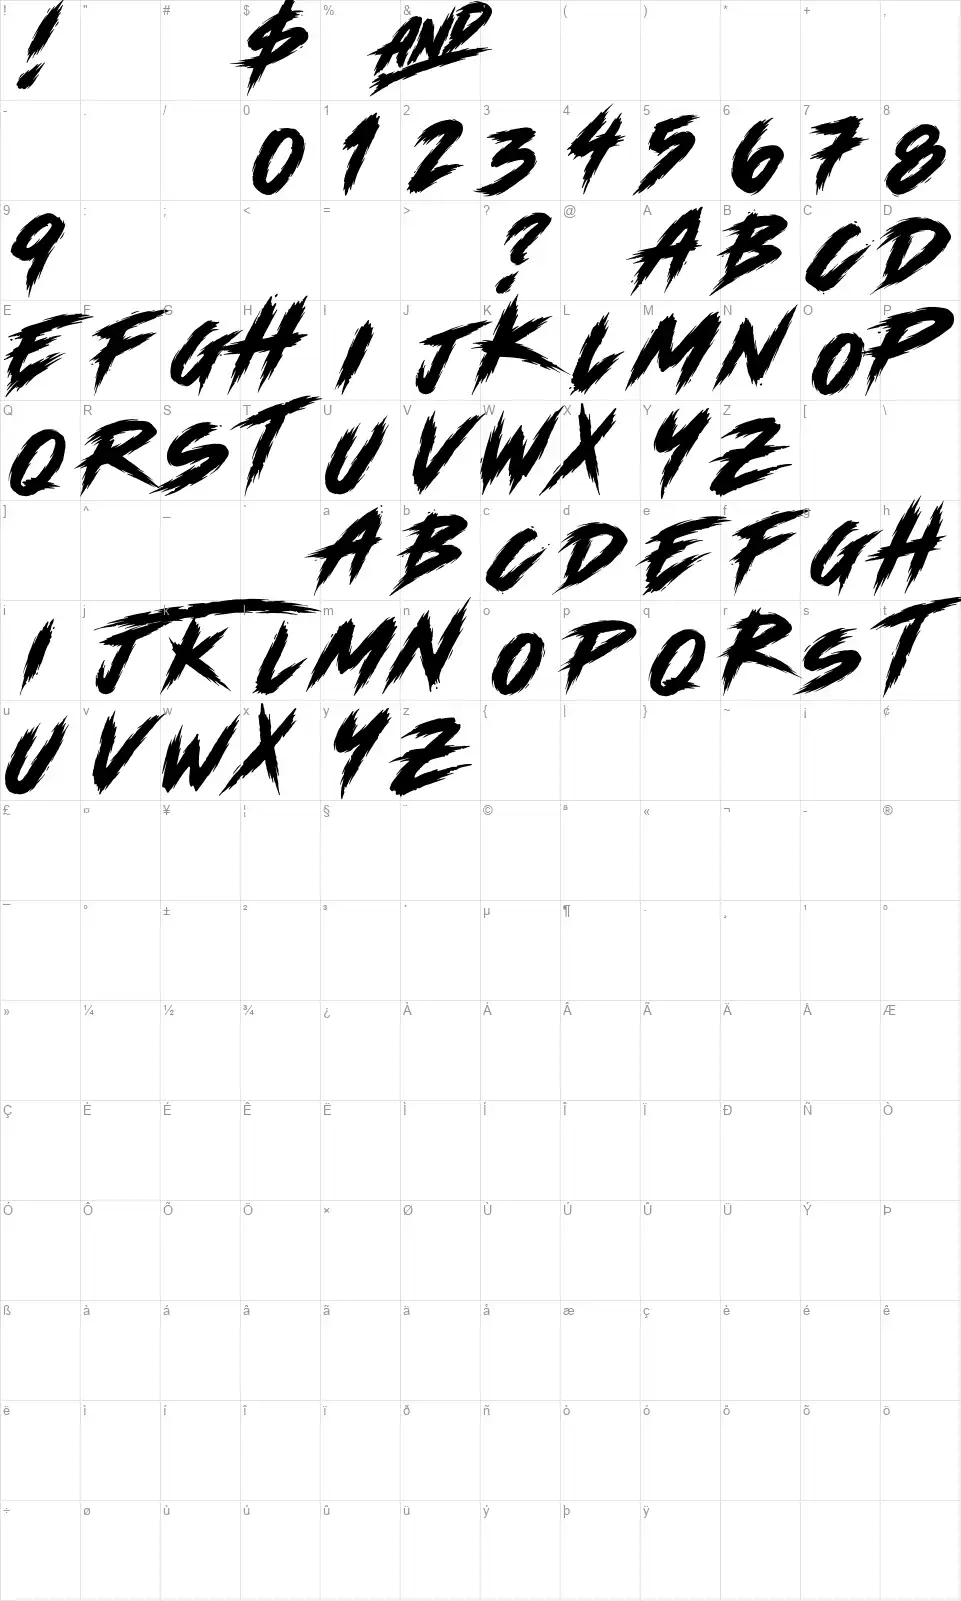 ! " # $ % & ( ) * + ,
! $ AND
- . / 0 1 2 3 4 5 6 7 8
0 1 2 3 4 5 6 7 8
9 : ; < = > ? @ A B C D
9 ? A B C D
E F G H I J K L M N O P
E F G H I J K L M N O P
Q R S T U V W X Y Z [ \
Q R S T U V W X Y Z
] ^ _ ` a b c d e f g h
A B C D E F G H
i j k l m n o p q r s t
I J K L M N O P Q R S T
u v w x y z { | } ~ ¡ ¢
U V W X Y Z
£ ¤ ¥ ¦ § ¨ © ª « ¬ - ®
¯ ° ± ² ³ ´ µ ¶ · ¸ ¹ º
» ¼ ½ ¾ ¿ À Á Â Ã Ä Å Æ
Ç È É Ê Ë Ì Í Î Ï Ð Ñ Ò
Ó Ô Õ Ö × Ø Ù Ú Û Ü Ý Þ
ß à á â ã ä å æ ç è é ê
ë ì í î ï ð ñ ò ó ô õ ö
÷ ø ù ú û ü ý þ ÿ